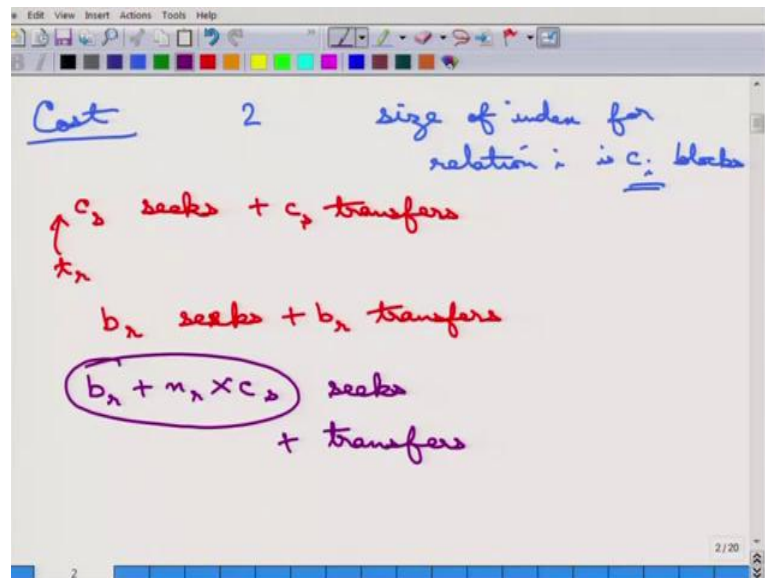 e Edit View Insert Actions Tools Help
Cost 2 size of index for
relation i is cᵢ blocks
cₛ seeks + cₛ transfers
tᵣ
bᵣ seeks + bᵣ transfers
bᵣ + nᵣ × cₛ seeks
+ transfers
2/20
2